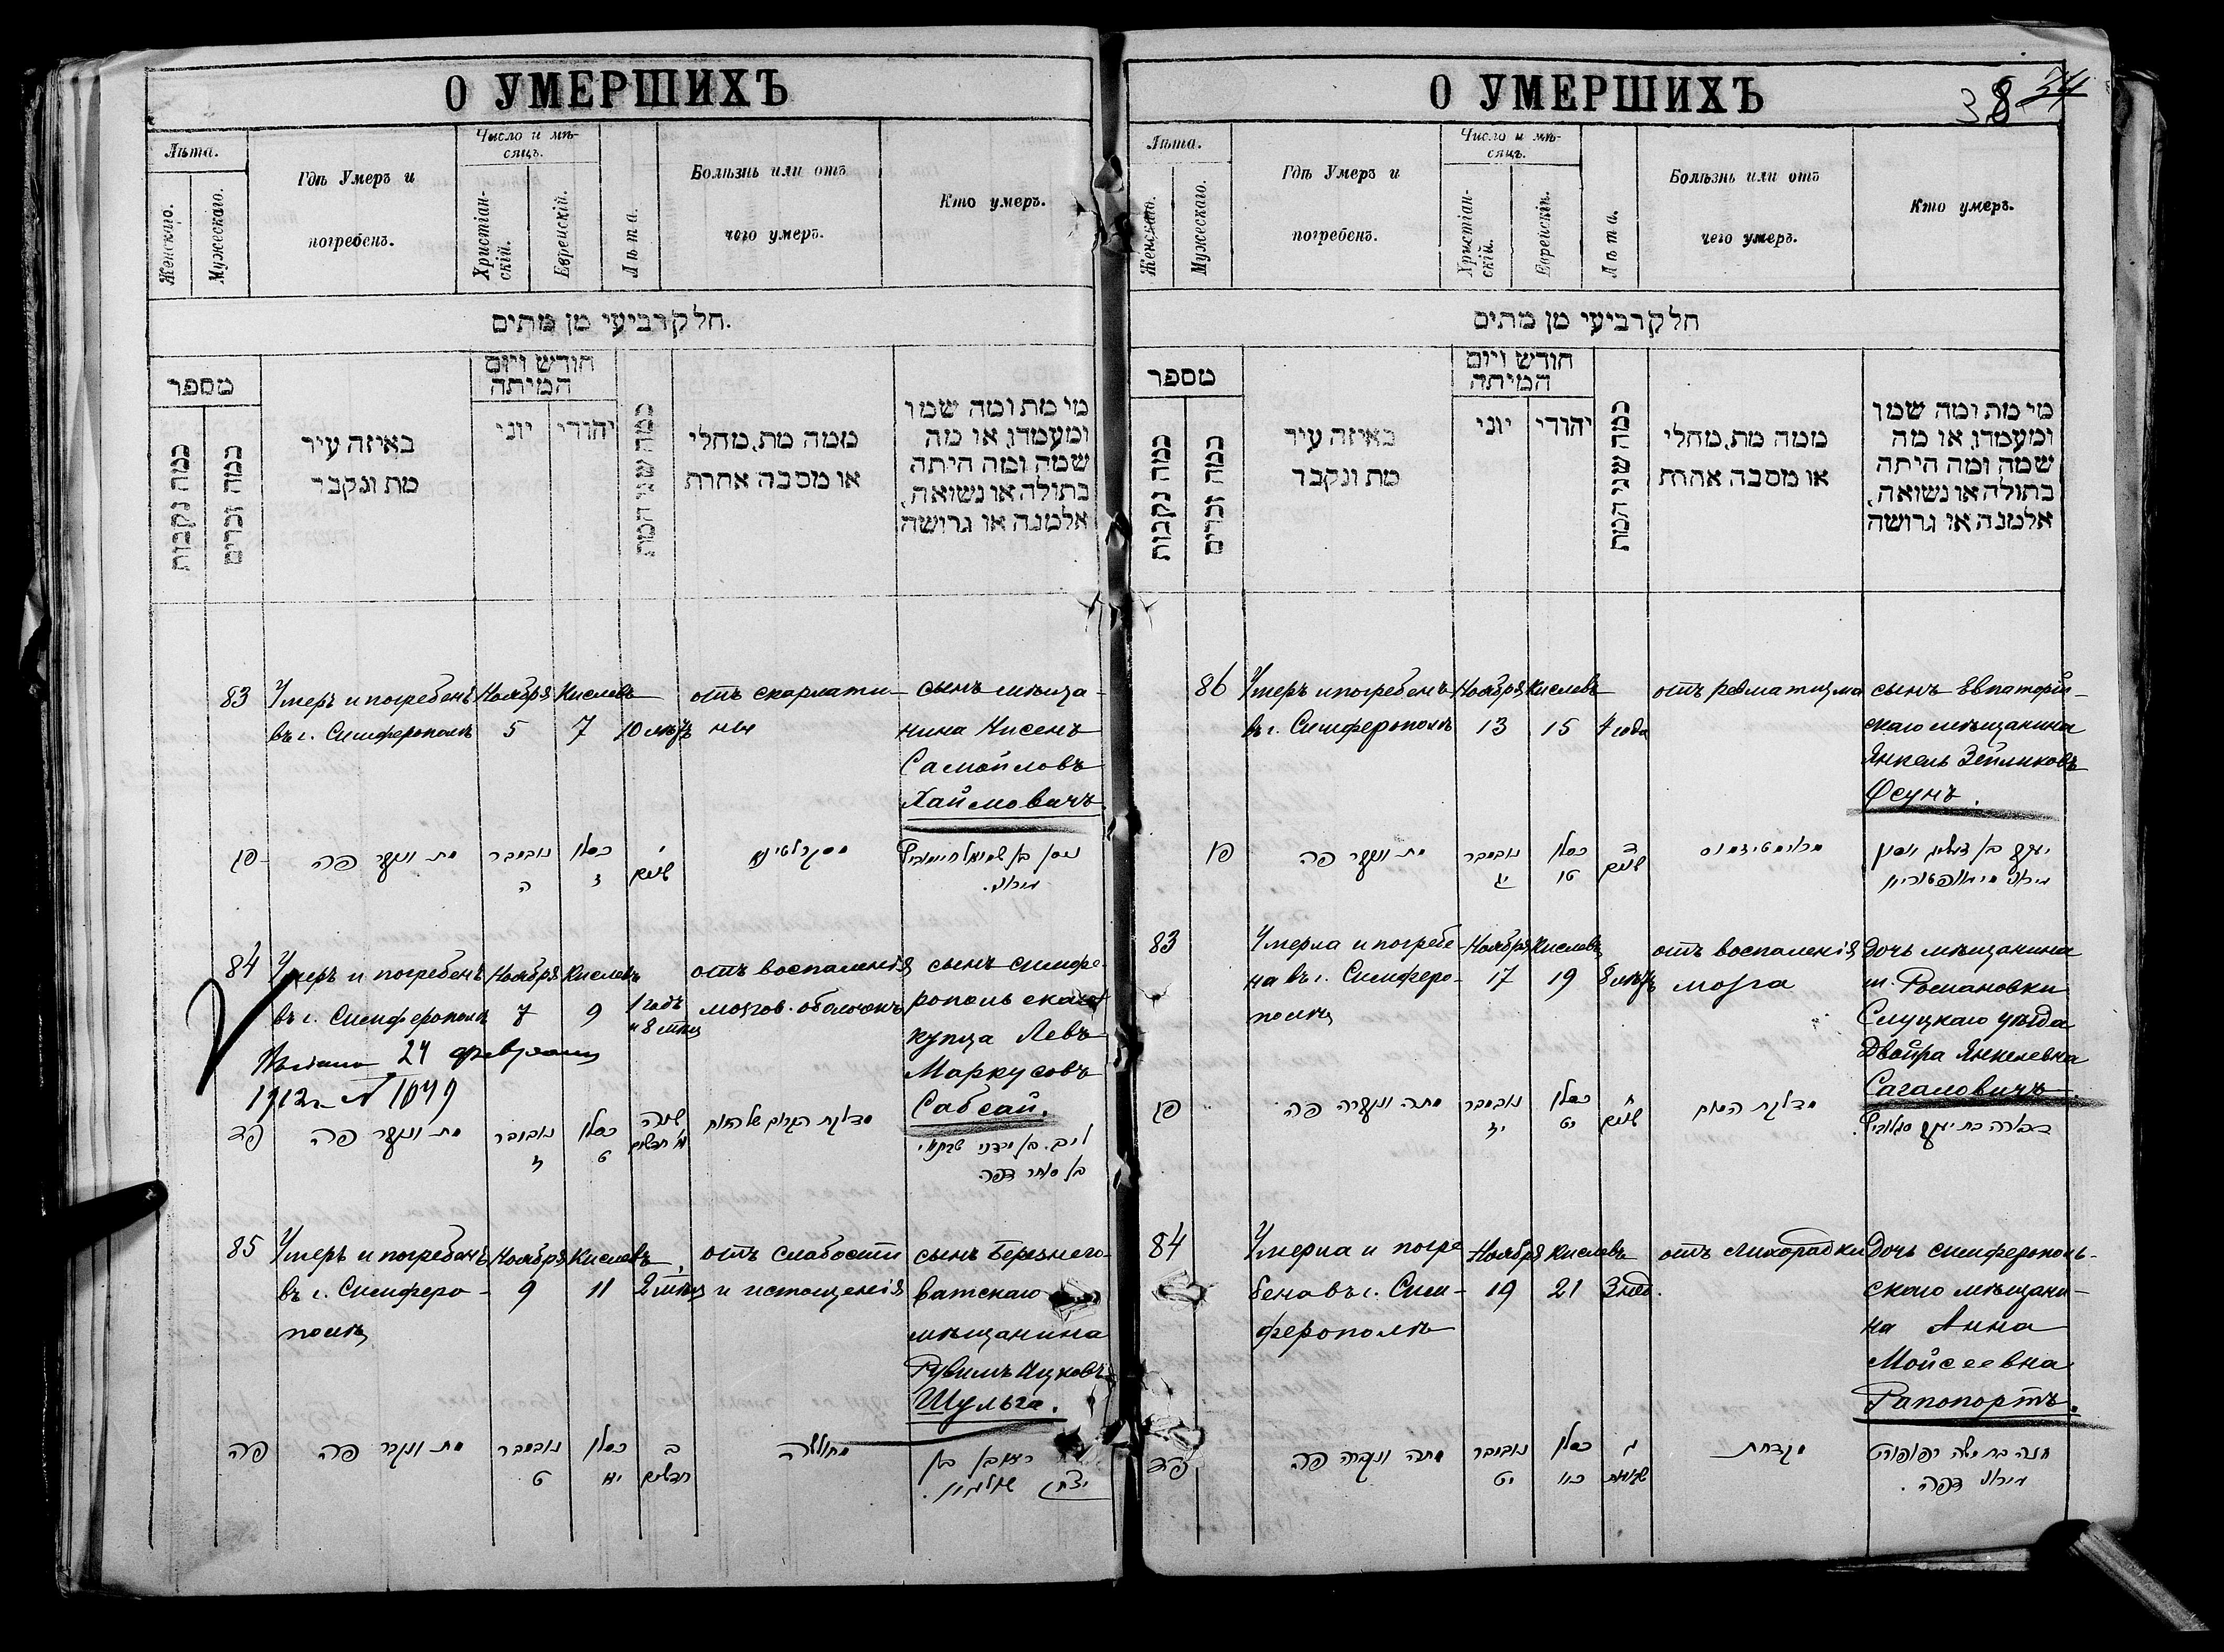 О УМЕРШИХЪ
Лѣта.
Женскаго.
Мужескаго.
Гдѣ Умеръ и
погребенъ.
Число и мѣ-
сяцъ.
Христіан-
скій.
Еврейскій.
Лѣта.
Болѣзнь или отъ
чего умеръ.
Кто умеръ.
חלק רביעי מן מתים.
מספר
כמה נקבות
כמה זכרים
באיזה עיר
מת ונקבר
חודש ויום
המיתה
יוני
יהודי
כמה שני המת
ממה מת, מחלי
או מסבה אחרת
מי מת ומה שמו
ומעמדו, או מה
שמה ומה היתה
בתולה או נשואה,
אלמנה או גרושה
83
Умеръ и погребенъ
въ г. Симферополѣ
Ноября
5
Кислевъ
7
10 лѣтъ
отъ скарлати-
ны
сынъ мѣща-
нина Нисенъ
Самойловъ
Хаймовичъ
פג
מת ונקבר פה
נובמבר
ה
כסלו
ז
י
שנים
מסקרלטינא
ניסן בן שמואל חיימוביץ
84
Умеръ и погребенъ
въ г. Симферополѣ
Ноября
7
Кислевъ
9
1 годъ
и 8 мѣц
отъ воспаленія
мозгов. оболочекъ
сынъ симфе-
ропольскаго
купца Левъ
Маркусовъ
Сабсай.
24 февраля
1912 г. № 1049
פד
מת ונקבר פה
נובמבר
ז
כסלו
ט
שנה
חדשים
מדלקת הקרום של המוח
בן סוחר דפה
85
Умеръ и погребенъ
въ г. Симферо-
полѣ
Ноября
9
Кислевъ
11
2 мѣц
отъ слабости
и истощенія
сынъ Березнего-
ватскаго
мѣщанина
Рувимъ Ицковъ
Шульга.
פה
מת ונקבר פה
נובמבר
ט
כסלו
יא
ב
חדשים
מחולשה
ראובן בן
יצחק
О УМЕРШИХЪ
38 34
Лѣта.
Женскаго.
Мужескаго.
Гдѣ Умеръ и
погребенъ.
Число и мѣ-
сяцъ.
Христіан-
скій.
Еврейскій.
Лѣта.
Болѣзнь или отъ
чего умеръ.
Кто умеръ.
חלק רביעי מן מתים
מספר
כמה נקבות
כמה זכרים
באיזה עיר
מת ונקבר
חודש ויום
המיתה
יוני
יהודי
כמה שני המת
ממה מת, מחלי
או מסבה אחרת
מי מת ומה שמו
ומעמדו, או מה
שמה ומה היתה
בתולה או נשואה,
אלמנה או גרושה
86
Умеръ и погребенъ
въ г. Симферополѣ
Ноября
13
Кислевъ
15
4 года
отъ ревматизма
сынъ Евпаторій-
скаго мѣщанина
Янкель Зейликовъ
Фсунъ.
פו
מת ונקבר פה
נובמבר
יג
כסלו
טו
ד
שנים
83
Умерла и погребе-
на въ г. Симферо-
полѣ
Ноября
17
Кислевъ
19
8 лѣтъ
отъ воспаленія
мозга
Дочь мѣщанина
м. Романовки
Слуцкаго уѣзда
Двойра Янкелевна
Сагаловичъ.
פג
מתה ונקברה פה
נובמבר
יז
כסלו
יט
ח
שנים
מדלקת המוח
דבורה בת יעקב סגלוביץ.
84
Умерла и погре
бена въ г. Сим-
ферополѣ
Ноября
19
Кислевъ
21
3 нед.
отъ лихорадки
Дочь симферополь-
скаго мѣщани-
на Анна
Мойсеевна
Рапопортъ.
פד
מתה ונקברה פה
נובמבר
יט
כסלו
כא
ג
שבועות
מקדחת
חנה בת משה רפופורט
דפה.